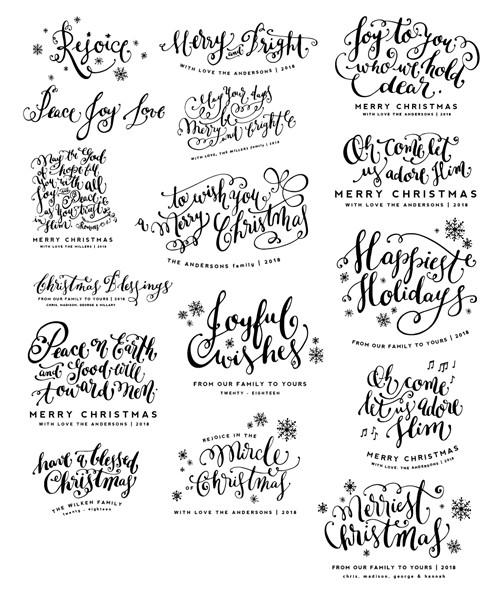 Rejoice
Peace Joy Love
May the God
of hope fill
you with all
Joy and Peace
as you trust in
Him Romans
MERRY CHRISTMAS
WITH LOVE THE MILLERS | 2018
Christmas Blessings
FROM OUR FAMILY TO YOURS | 2018
CHRIS, MADISON, GEORGE & HILLARY
Peace on Earth
and Good will
toward men.
MERRY CHRISTMAS
WITH LOVE THE ANDERSONS | 2018
have a blessed
Christmas
THE WILKEN FAMILY
twenty - eighteen
Merry and Bright
WITH LOVE THE ANDERSONS | 2018
May your days
be
Merry
and bright
WITH LOVE, THE MILLERS family | 2018
to wish you
a Merry Christmas
THE ANDERSONS family | 2018
Joyful
wishes
FROM OUR FAMILY TO YOURS
TWENTY - EIGHTEEN
REJOICE IN THE
Miracle
OF Christmas
WITH LOVE THE ANDERSONS | 2018
Joy to you
who we hold
dear.
MERRY CHRISTMAS
WITH LOVE THE ANDERSONS | 2018
Oh come let
us adore Him
MERRY CHRISTMAS
WITH LOVE THE ANDERSONS | 2018
Happiest
Holidays
FROM OUR FAMILY TO YOURS | 2018
Oh come,
let us adore
Him
MERRY CHRISTMAS
WITH LOVE, THE ANDERSONS | 2018
Merriest
Christmas
FROM OUR FAMILY TO YOURS | 2018
chris, madison, george & hannah